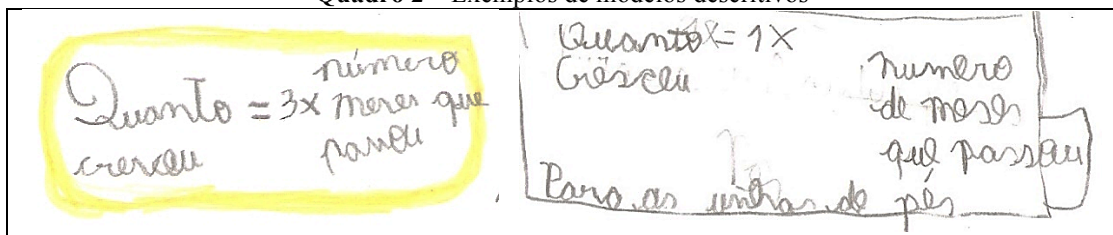 Quadro 2 – Exemplos de modelos descritivos
Quanto = 3x número
cresceu meses que
passou
Quanto = 1X
Cresceu numero
de meses
que passou
Para as unhas de pés